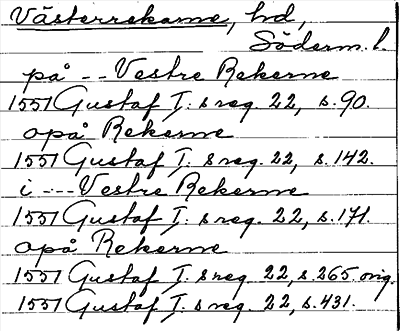 Västerrekarne, hd,
Söderm. l.
på -- Vestre Rekerne
1551 Gustaf I:s reg. 22, s. 90.
opå Rekerne
1551 Gustaf I:s reg. 22, s. 142.
i --- Vestre Rekerne
1551 Gustaf I:s reg. 22, s. 171.
opå Rekerne
1551 Gustaf I:s reg. 22, s. 265 orig.
1551 Gustaf I:s reg. 22, s. 431.